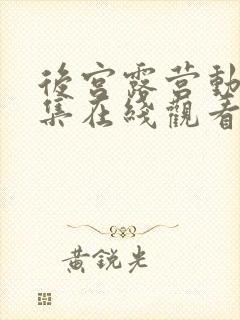 後宮露営動
集在綫觀看
黃銳光